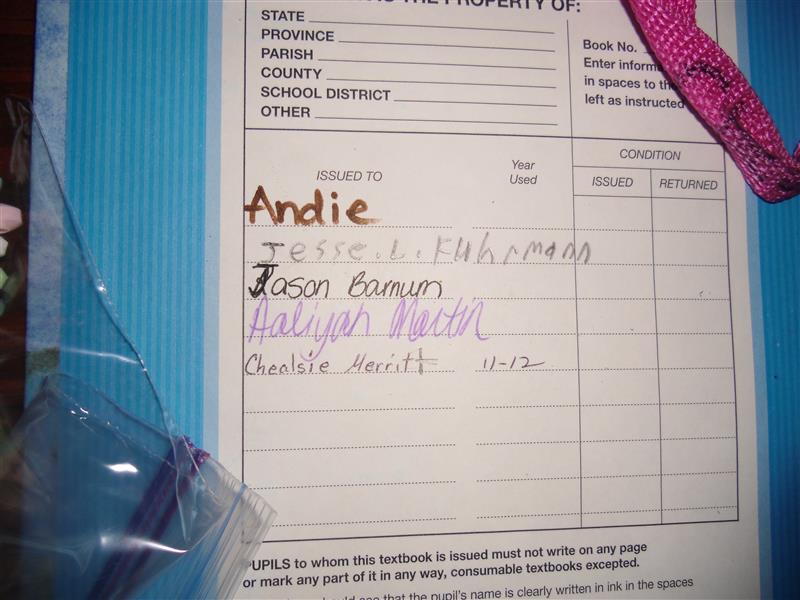 THE PROPERTY OF:
STATE
PROVINCE
PARISH
COUNTY
SCHOOL DISTRICT
OTHER
Book No.
Enter
in spaces to
left as instructed
CONDITION
ISSUED TO
Year
Used
ISSUED
RETURNED
Andie
Jesse. L. Fuhrmann
Jason Barnum
Aaliyah Martin
Chealsie Merritt 11-12
PUPILS to whom this textbook is issued must not write on any page
or mark any part of it in any way, consumable textbooks excepted.
see that the pupil's name is clearly written in ink in the spaces